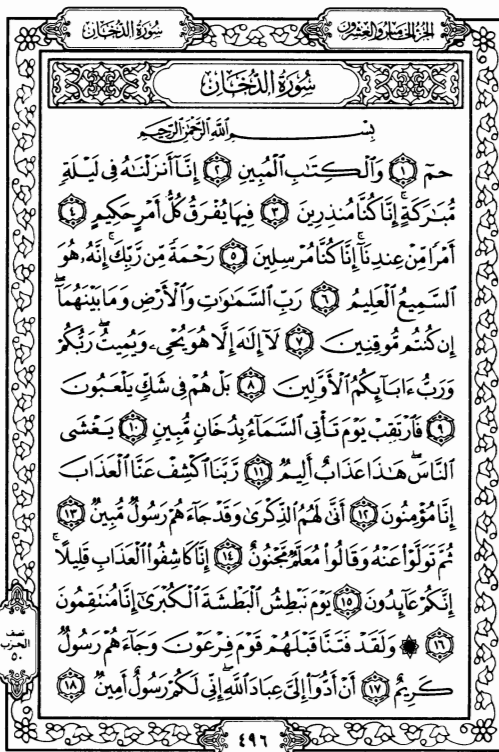 سُورَةُ الدُّخَانِ
الجُزءُ الخَامِسُ وَالعِشرُونَ
سُورَةُ الدُّخَانِ
بِسْمِ اللَّهِ الرَّحْمَٰنِ الرَّحِيمِ
حمٓ ۝١ وَالْكِتَابِ الْمُبِينِ ۝٢ إِنَّا أَنزَلْنَاهُ فِي لَيْلَةٍ
مُّبَارَكَةٍ ۚ إِنَّا كُنَّا مُنذِرِينَ ۝٣ فِيهَا يُفْرَقُ كُلُّ أَمْرٍ حَكِيمٍ ۝٤
أَمْرًا مِّنْ عِندِنَا ۚ إِنَّا كُنَّا مُرْسِلِينَ ۝٥ رَحْمَةً مِّن رَّبِّكَ ۚ إِنَّهُ هُوَ
السَّمِيعُ الْعَلِيمُ ۝٦ رَبِّ السَّمَاوَاتِ وَالْأَرْضِ وَمَا بَيْنَهُمَا ۖ
إِن كُنتُم مُّوقِنِينَ ۝٧ لَا إِلَٰهَ إِلَّا هُوَ يُحْيِي وَيُمِيتُ ۖ رَبُّكُمْ
وَرَبُّ ءَابَائِكُمُ الْأَوَّلِينَ ۝٨ بَلْ هُمْ فِي شَكٍّ يَلْعَبُونَ
۝٩ فَارْتَقِبْ يَوْمَ تَأْتِي السَّمَاءُ بِدُخَانٍ مُّبِينٍ ۝١٠ يَغْشَى
النَّاسَ ۖ هَٰذَا عَذَابٌ أَلِيمٌ ۝١١ رَّبَّنَا اكْشِفْ عَنَّا الْعَذَابَ
إِنَّا مُؤْمِنُونَ ۝١٢ أَنَّىٰ لَهُمُ الذِّكْرَىٰ وَقَدْ جَاءَهُمْ رَسُولٌ مُّبِينٌ ۝١٣
ثُمَّ تَوَلَّوْا عَنْهُ وَقَالُوا مُعَلَّمٌ مَّجْنُونٌ ۝١٤ إِنَّا كَاشِفُوا الْعَذَابِ قَلِيلًا ۚ
إِنَّكُمْ عَائِدُونَ ۝١٥ يَوْمَ نَبْطِشُ الْبَطْشَةَ الْكُبْرَىٰ إِنَّا مُنتَقِمُونَ
۝١٦ ۞ وَلَقَدْ فَتَنَّا قَبْلَهُمْ قَوْمَ فِرْعَوْنَ وَجَاءَهُمْ رَسُولٌ
كَرِيمٌ ۝١٧ أَنْ أَدُّوا إِلَيَّ عِبَادَ اللَّهِ ۖ إِنِّي لَكُمْ رَسُولٌ أَمِينٌ ۝١٨
نصف
الحزب
٥٠
٤٩٦